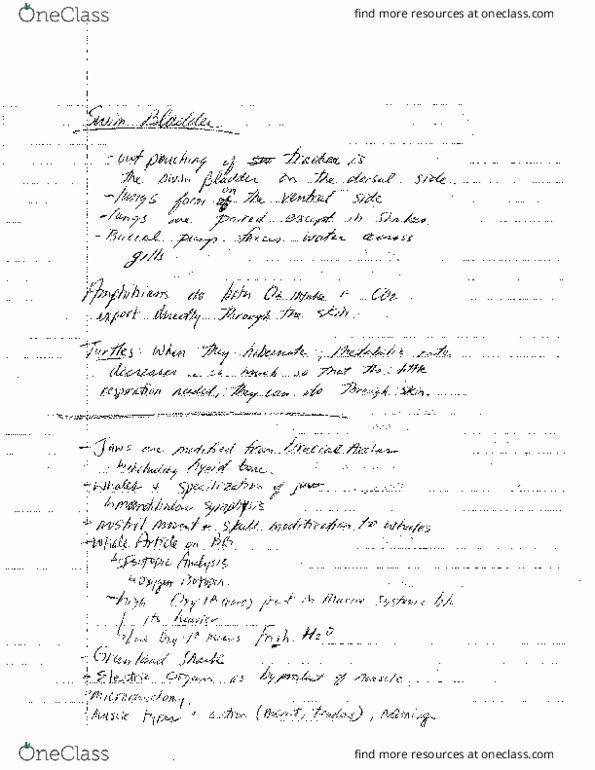 OneClass
find more resources at oneclass.com
Swim Bladder
- out pouching of is
the swim bladder on the dorsal side
- lungs form on the ventral side
- lungs are paired except in snakes
- Buccal pumps forces water across
gills
Amphibians do both O2 intake + CO2
export directly through the skin.
Turtles: When they hibernate, metabolic rate
decreases so much so that the little
respiration needed, they can do through skin.
- Jaws are modified from
including hyoid bone
- Whales + specilization of jaw
mandibular symphysis
nostril movmt + skull modification to whales
- Whale Article on BB
Isotopic Analysis
Oxygen isotopes
- high Oxy in Marine Systems b/c
its heavier
low Oxy means Fresh H2O
- Greenland Shark
- Electric Organs as byproduct of muscle
- Microanatomy
- Muscle types + action (tendons), naming
OneClass
find more resources at oneclass.com